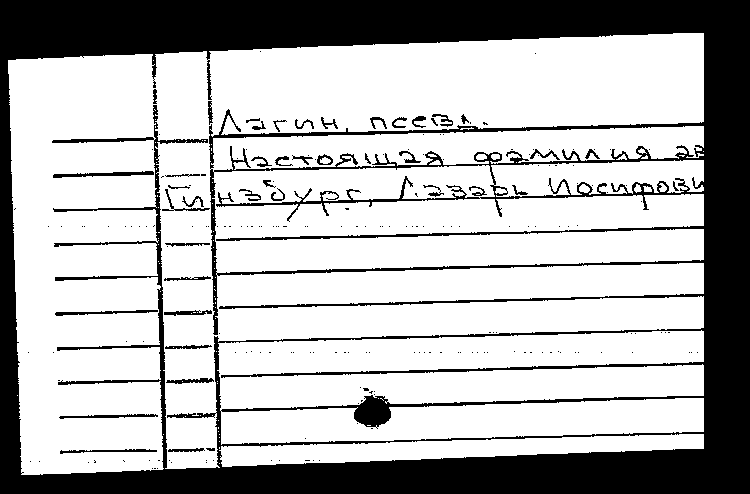 Лагин, псевд.
Настоящая фамилия ав
Гинзбург, Лазарь Иосифови